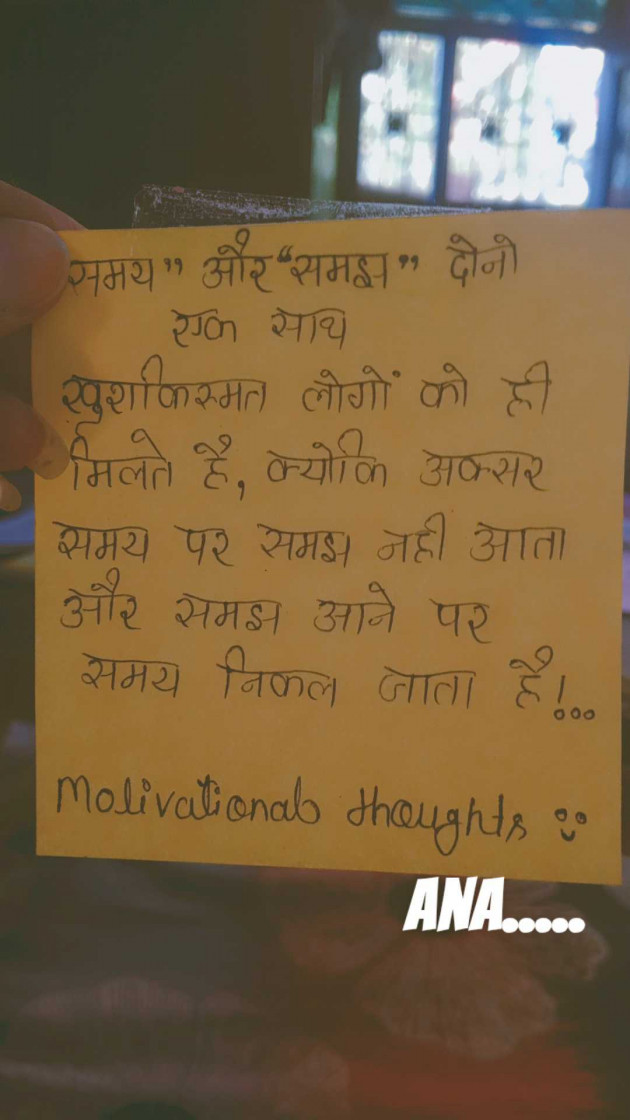 समय” और “समझ” दोनो
एक साथ
खुशकिस्मत लोगों को ही
मिलते है, क्योकि अक्सर
समय पर समझ नही आता
और समझ आने पर
समय निकल जाता है!...
Motivational thoughts
ANA.....